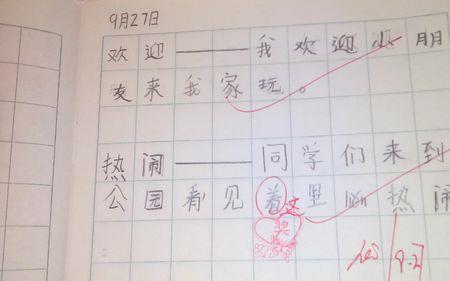 9月27日
欢迎——我欢迎小朋
友来我家玩。
热闹——同学们来到
公园看见着这里 热闹
奖
100 9.27